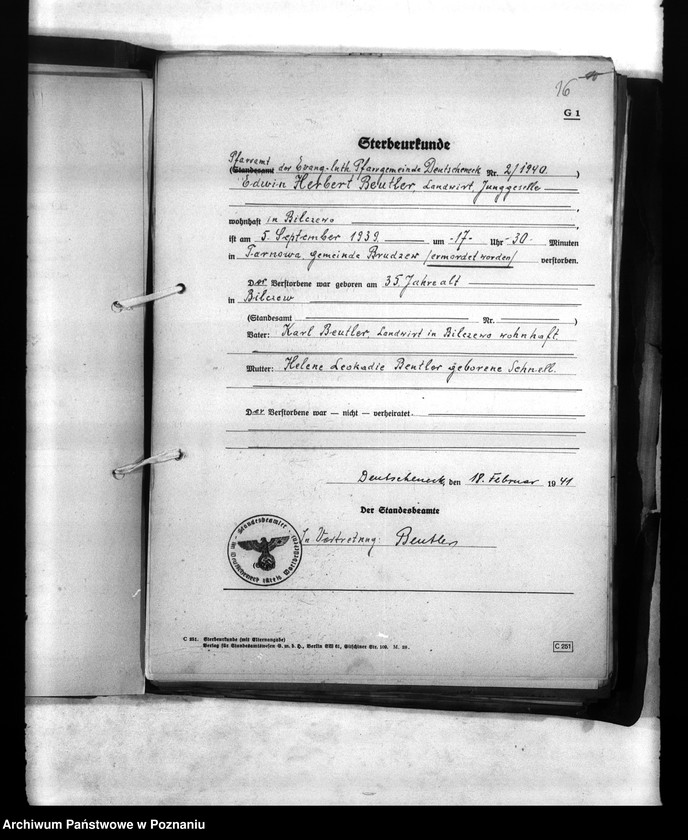 16
G 1
Sterbeurkunde
Pfarramt
(Standesamt der Evang.-luth. Pfarrgemeinde Deutscheneck Nr. 2/1940.)
Edwin Herbert Beutler, Landwirt, Junggeselle
wohnhaft in Bilczewo
ist am 5. September 1939 um -17- Uhr -30- Minuten
in Tarnowa, gemeinde Brudzew /ermordet worden/ verstorben.
Der Verstorbene war geboren am 35 Jahre alt
in Bilczew
(Standesamt Nr. )
Vater: Karl Beutler, Landwirt in Bilczewo wohnhaft
Mutter: Helene Leokadie Beutler geborene Schnell.
Der Verstorbene war — nicht — verheiratet
Deutscheneck, den 18. Februar 1941
Der Standesbeamte
In Vertretung: Beutler
Standesbeamter
C 251. Sterbeurkunde (mit Elternangabe)
Verlag für Standesamtswesen G. m. b. H., Berlin SW 61, Gitschiner Str. 109.
C 251
Archiwum Państwowe w Poznaniu